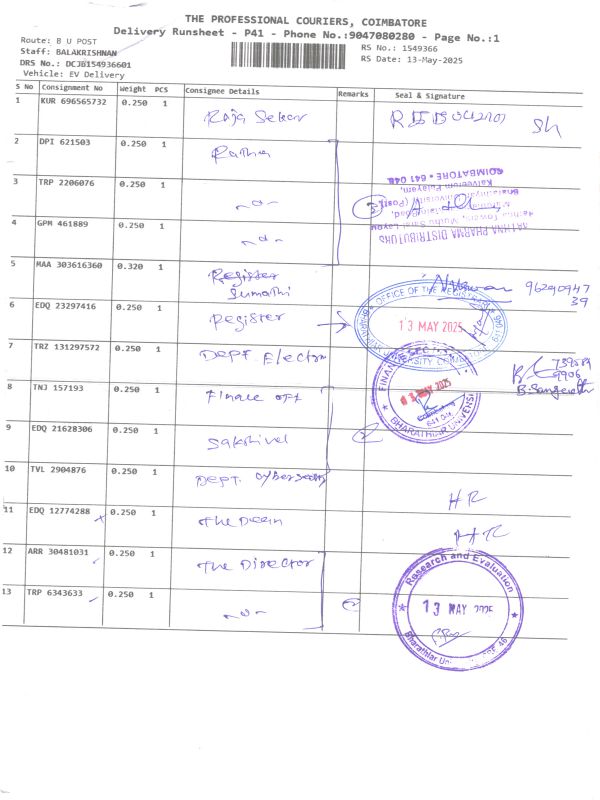 THE PROFESSIONAL COURIERS, COIMBATORE
Delivery Runsheet - P41 - Phone No.:9047080280 - Page No.:1
Route: B U POST
Staff: BALAKRISHNAN
DRS No.: DCJB154936601
Vehicle: EV Delivery
RS No.: 1549366
RS Date: 13-May-2025
S No Consignment No Weight PCS Consignee Details Remarks Seal & Signature
1 KUR 696565732 0.250 1 Raja Sekar
2 DPI 621503 0.250 1 Rathna
3 TRP 2206076 0.250 1 -"- 3
RATHNA PHARMA DISTRIBUTORS
COIMBATORE - 641 046
4 GPM 461889 0.250 1 -"-
5 MAA 303616360 0.320 1 Register
Sumathi
96290947
39
6 EDQ 23297416 0.250 1 Register
OFFICE OF THE REGISTRAR
13 MAY 2025
BHARATHIAR UNIVERSITY COIMBATORE
7 TRZ 131297572 0.250 1 Dept. Electron
B. Sangeeth
8 TNJ 157193 0.250 1 Finance off
13 MAY 2025
BHARATHIAR UNIVERSI
9 EDQ 21628306 0.250 1 Sakthivel
10 TVL 2904876 0.250 1 Dept. Cybersecu
HR
11 EDQ 12774288 0.250 1 The Dean
HR
12 ARR 30481031 0.250 1 The Director
13 TRP 6343633 0.250 1 -"- 2
Research and Evaluation
13 MAY 2025
Bharathiar Un